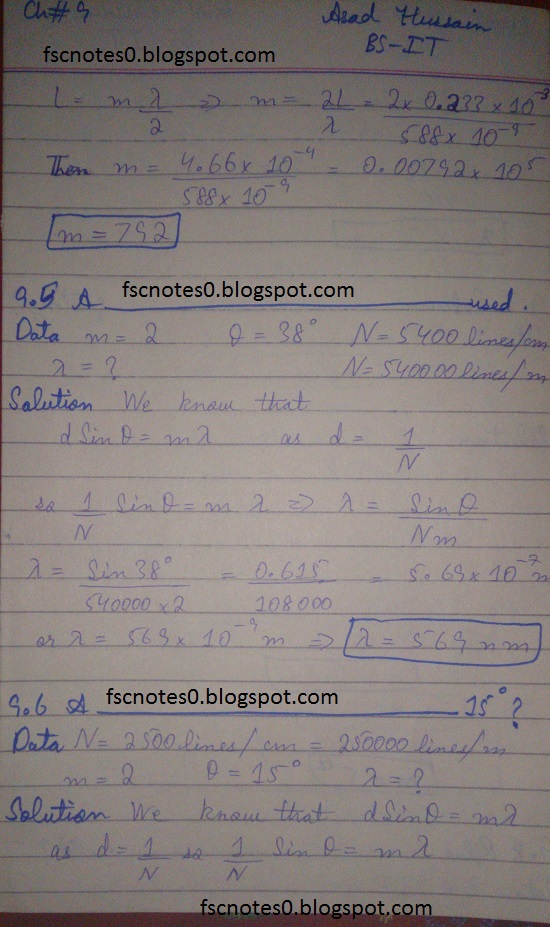 Ch# 9 Asad Hussain
BS-IT
fscnotes0.blogspot.com
L = m λ/2 => m = 2L/λ = 2 x 0.233 x 10⁻³ / 588 x 10⁻⁹
Then m = 4.66 x 10⁻⁴ / 588 x 10⁻⁹ = 0.00792 x 10⁵
m = 792
9.5 A fscnotes0.blogspot.com used.
Data m = 2 θ = 38° N = 5400 lines/cm
λ = ? N = 540000 lines/m
Solution We know that
d Sin θ = m λ as d = 1/N
so 1/N Sin θ = m λ => λ = Sin θ / Nm
λ = Sin 38° / 540000 x 2 = 0.615 / 108000 = 5.69 x 10⁻⁷ m
or λ = 569 x 10⁻⁹ m => λ = 569 nm
9.6 A fscnotes0.blogspot.com 15°?
Data N = 2500 lines/cm = 250000 lines/m
m = 2 θ = 15° λ = ?
Solution We know that d Sin θ = m λ
as d = 1/N so 1/N Sin θ = m λ
fscnotes0.blogspot.com